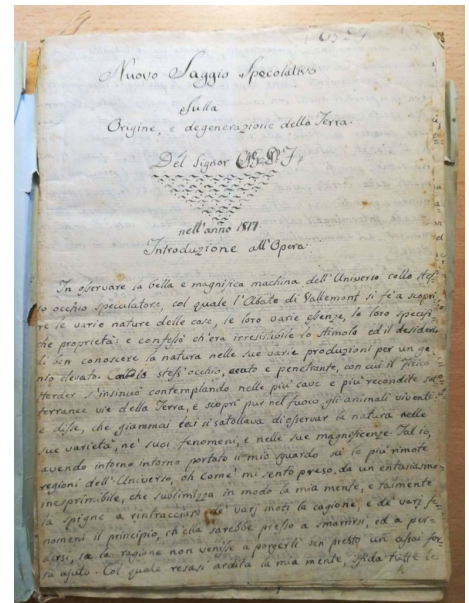 Nuovo Saggio Specolativo
Sulla
Origine, e degenerazione della Terra.
Del Signor
nell'anno 1817
Introduzione all'Opera
In osservare la bella e magnifica machina dell'Universo collo stes-
so occhio speculatore, col quale l'Abate di Vallemont si fe' a scopri-
re le varie nature delle cose, le loro varie essenze, le loro specifi-
che proprietà: e confessò ch'era irresistibile lo stimolo ed il desiderio
di ben conoscere la natura nelle sue varie produzioni per un ge-
nio elevato. stess'occhio, acuto e penetrante, con cui il fisico
Herder s'insinuò contemplando nelle più cave e più recondite sot-
terranee vie della Terra, e scoprì pur nel fuoco gli animali viventi:
e disse, che giammai si satollava di osservar la natura nelle
sue varietà, ne' suoi fenomeni, e nelle sue magnificenze. Tal io,
avendo intorno intorno portato il mio sguardo su le più rimote
regioni dell'Universo, oh come! mi sento preso da un entusiasmo
inesprimibile, che sublimizza in modo la mia mente, e talmente
la spigne a rintracciare de' varj moti la cagione, e de' varj fe-
nomeni il principio, ch'ella sarebbe presso a smarrirsi, ed a per-
dersi, se la ragione non venisse a porgerli ben presto un assai for-
te ajuto. Col quale resasi ardita la mia mente, sfida tutte le